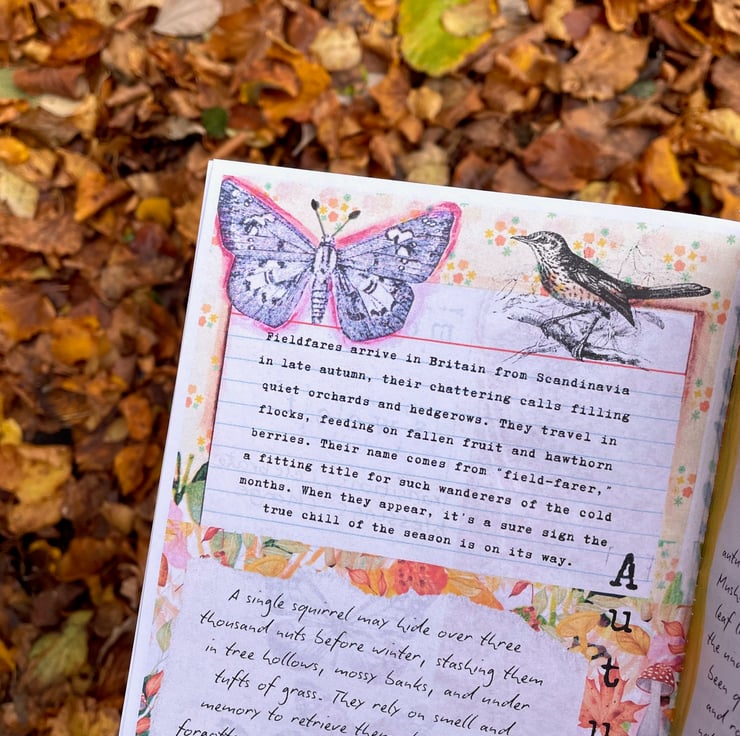 Fieldfares arrive in Britain from Scandinavia
in late autumn, their chattering calls filling
quiet orchards and hedgerows. They travel in
flocks, feeding on fallen fruit and hawthorn
berries. Their name comes from "field-farer,"
a fitting title for such wanderers of the cold
months. When they appear, it's a sure sign the
true chill of the season is on its way.
A
u
t
u
A single squirrel may hide over three
thousand nuts before winter, stashing them
in tree hollows, mossy banks, and under
tufts of grass. They rely on smell and
memory to retrieve
leaf
the
been
and